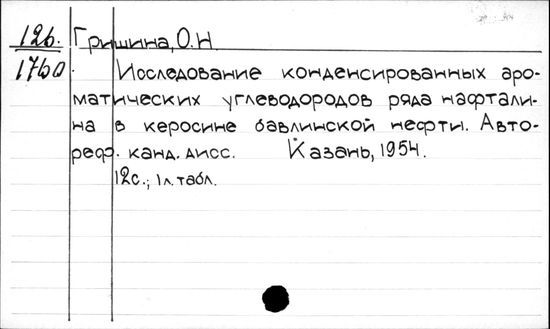 126.
1760
Гришина, О.Н.
Исследование конденсированных аро-
матических углеводородов ряда нафтали-
на в керосине бавлинской нефти. Авто-
реф. канд. дисс. Казань, 1954.
12с.; 1 л. табл.